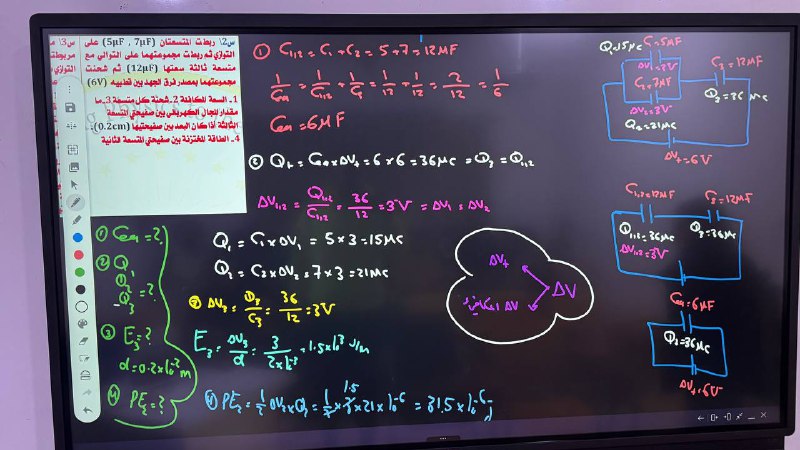 س2/ ربطت المتسعتان (5μF , 7μF) على
التوازي ثم ربطت مجموعتهما على التوالي مع
متسعة ثالثة سعتها (12μF) ثم شحنت
مجموعتهما بمصدر فرق الجهد بين قطبيه (6V)
1ـ السعة المكافئة 2ـ شحنة كل متسعة 3ـ ما
مقدار المجال الكهربائي بين صفيحتي المتسعة
الثالثة اذا كان البعد بين صفيحتيها (0.2cm).
4ـ الطاقة المختزنة بين صفيحتي المتسعة الثانية
س3/
① C₁,₂ = C₁ + C₂ = 5 + 7 = 12 μF
1/Ceq = 1/C₁,₂ + 1/C₃ = 1/12 + 1/12 = 2/12 = 1/6
Ceq = 6 μF
② Q_t = Ceq × ΔV_t = 6 × 6 = 36 μc = Q₃ = Q₁,₂
ΔV₁,₂ = Q₁,₂/C₁,₂ = 36/12 = 3V = ΔV₁ = ΔV₂
Q₁ = C₁ × ΔV₁ = 5 × 3 = 15 μc
Q₂ = C₂ × ΔV₂ = 7 × 3 = 21 μc
③ ΔV₃ = Q₃/C₃ = 36/12 = 3V
E₃ = ΔV₃/d = 3/2×10⁻³ = 1.5×10³ V/m
④ PE₂ = 1/2 ΔV₂ × Q₂ = 1/2 × 3 × 21 × 10⁻⁶ = 31.5 × 10⁻⁶ J
1.5
① Ceq = ?
② Q
Q₁
Q₂ = ?
Q₃
③ E₃ = ?
d = 0.2×10⁻² m
④ PE₂ = ?
ΔV_t
ΔV
ΔV
Q₁=15μc
C₁=5μF
ΔV₁=3V
C₂=7μF
ΔV₂=3V
Q₂=21μc
C₃=12μF
Q₃=36 μc
ΔV_t=6V
C₁,₂=12μF
C₃=12μF
Q₁,₂=36μc
ΔV₁,₂=3V
Q₃=36μc
Ceq=6μF
Q_t=36μc
ΔV_t=6V